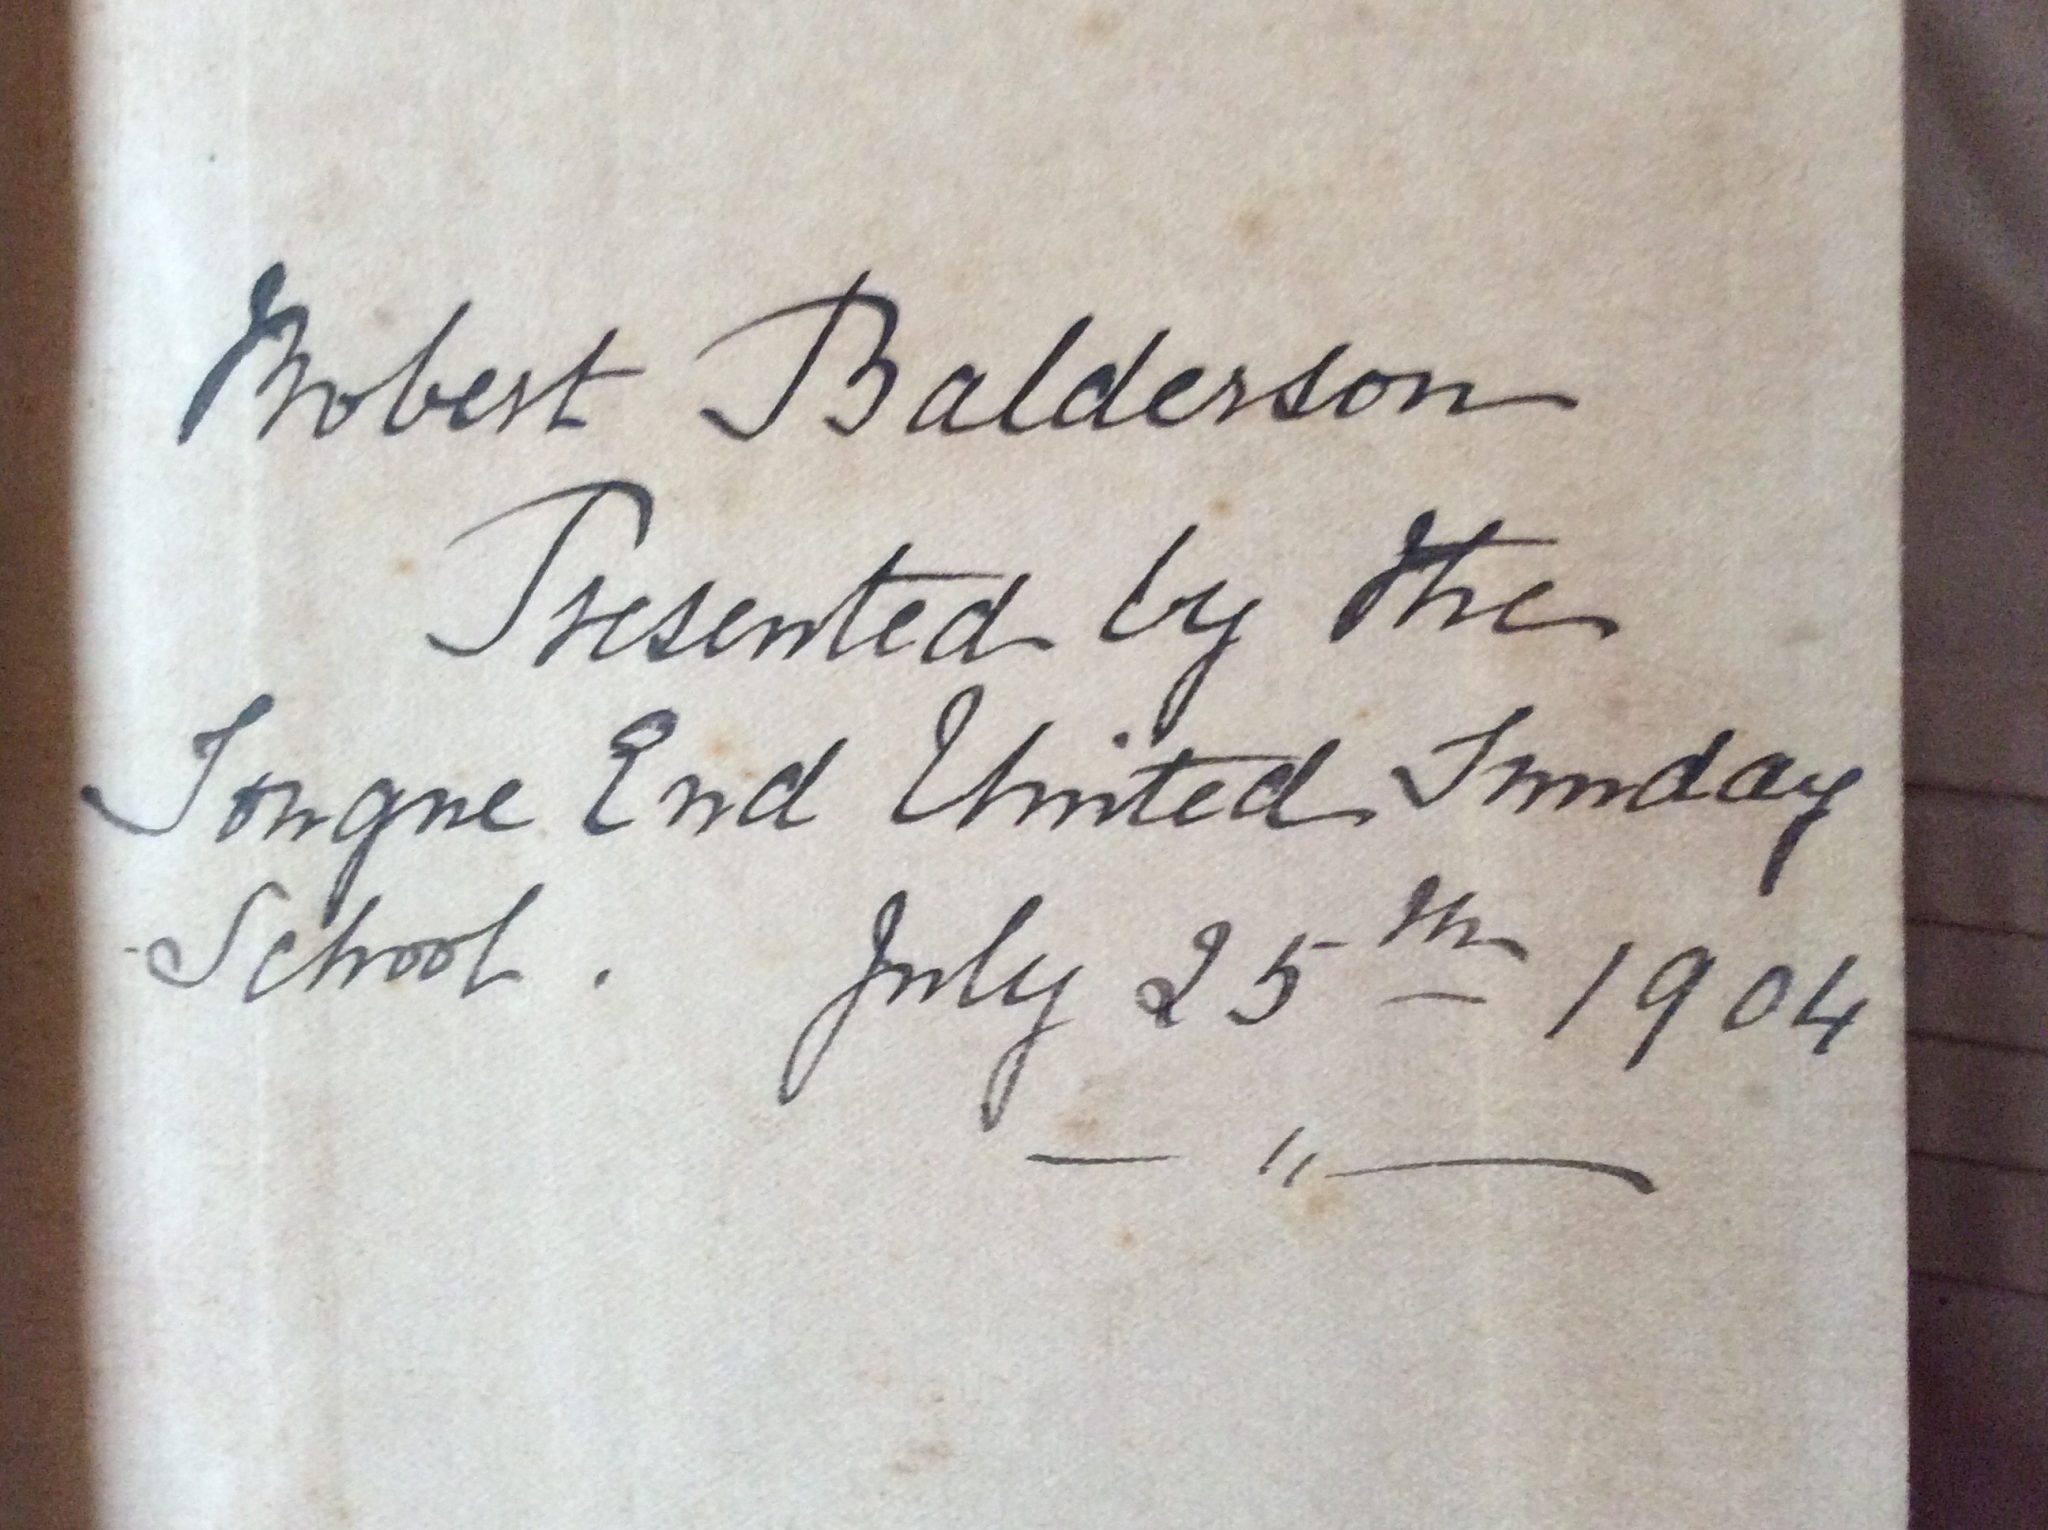 Robert Balderson
Presented by the
Tongue End United Sunday
School. July 25th 1904
— " —